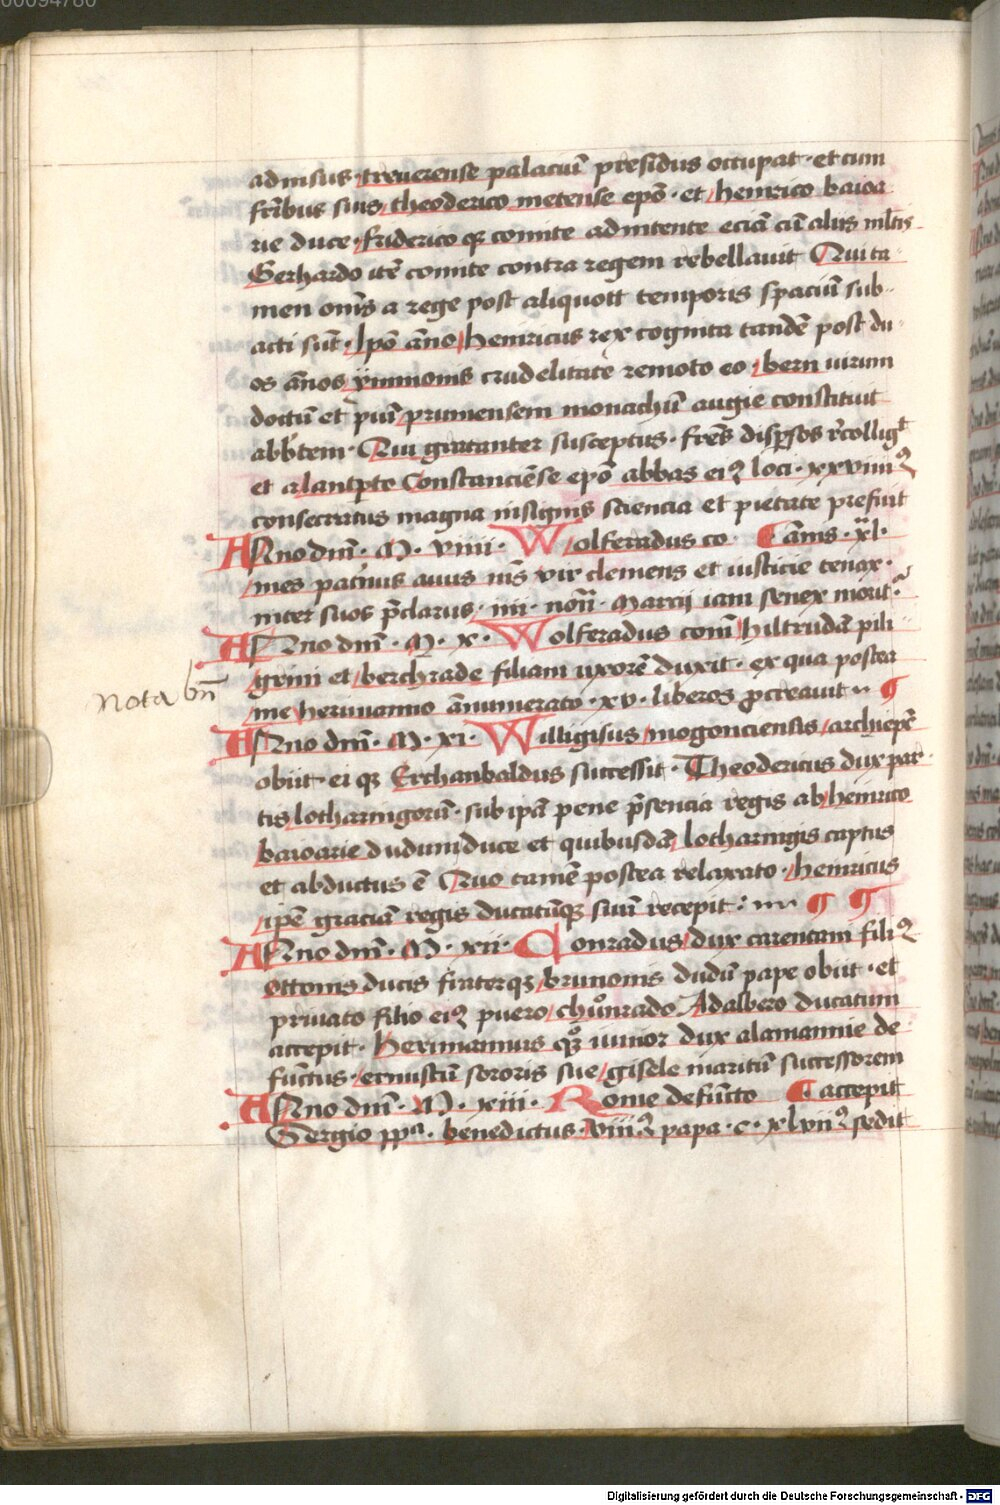 00094780
adnisus treuerense palaciū presidus occupat · et cum
fribus suis theoderico metense epō · et heinrico baioa
rie duce · friderico qз comite adnitente eciā cū aliis ml̄tis
Gerhardo itē comite contra regem rebellauit Qui ta
men om̄s a rege post aliquott temporis spaciū sub
acti sūt · Ipō āno heinricus rex cognita tandē post du
os ānos ymmonis crudelitate remoto eo bern uirum
doctū et piū prumensem monachū augie constituit
abb̄tem · Qui gratanter susceptus · fr̄es disp̄sos r̄colliḡt
et a lantp̄to Constanciēse epō abbas eiꝰ loci · xxviiiiꝰ
consecratus magna insignis sciencia et pietate prefuit
Anno dn̄i · M · viiii · Wolferadus co ¶ ānis · xl ·
mes pat̄nus auus m̄s vir clemens et iusticie tenax ·
inter suos p̄clarus · iiii · non̄ · Marcij iam senex morit̄ ·
Anno dn̄i · M · x · Wolferadus com̄ hiltrudam pili
grini et berchrade filiam uxorē duxit · ex qua postea
nota bn̄
me herimanno ānumerato · xv · liberos p̄creauit ¶
Anno dn̄i · M · xi · Willigisus mogonciensis archiepē
obiit · ei qз Erchanbaldus successit · Theodericus dux par
tis lotharingorū · sub ipā pene p̄sencia regis ab heinrico
baioarie dudum duce et quibusdā lotharingis captus
et abductus ē Quo tamē postea relaxato · heinricus
ipē graciā regis ducatūqз suū recepit : ¶ ¶
Anno dn̄i · M · xii · Conradus dux carentani filiꝰ
ottonis ducis fraterqз brunonis dudū pape obiit · et
priuato filio eiꝰ puero chůnrado Adalbero ducatum
accepit · Herimannus qз iunior dux alamannie de
fūctus · ernustū sororis sue gisele maritū successorem
Anno dn̄i · M · xiii · Rome defūcto ¶ accepit
Sergio ppª · benedictus · viiiꝰ papa · c · xlviiꝰ sedit
Digitalisierung gefördert durch die Deutsche Forschungsgemeinschaft - DFG